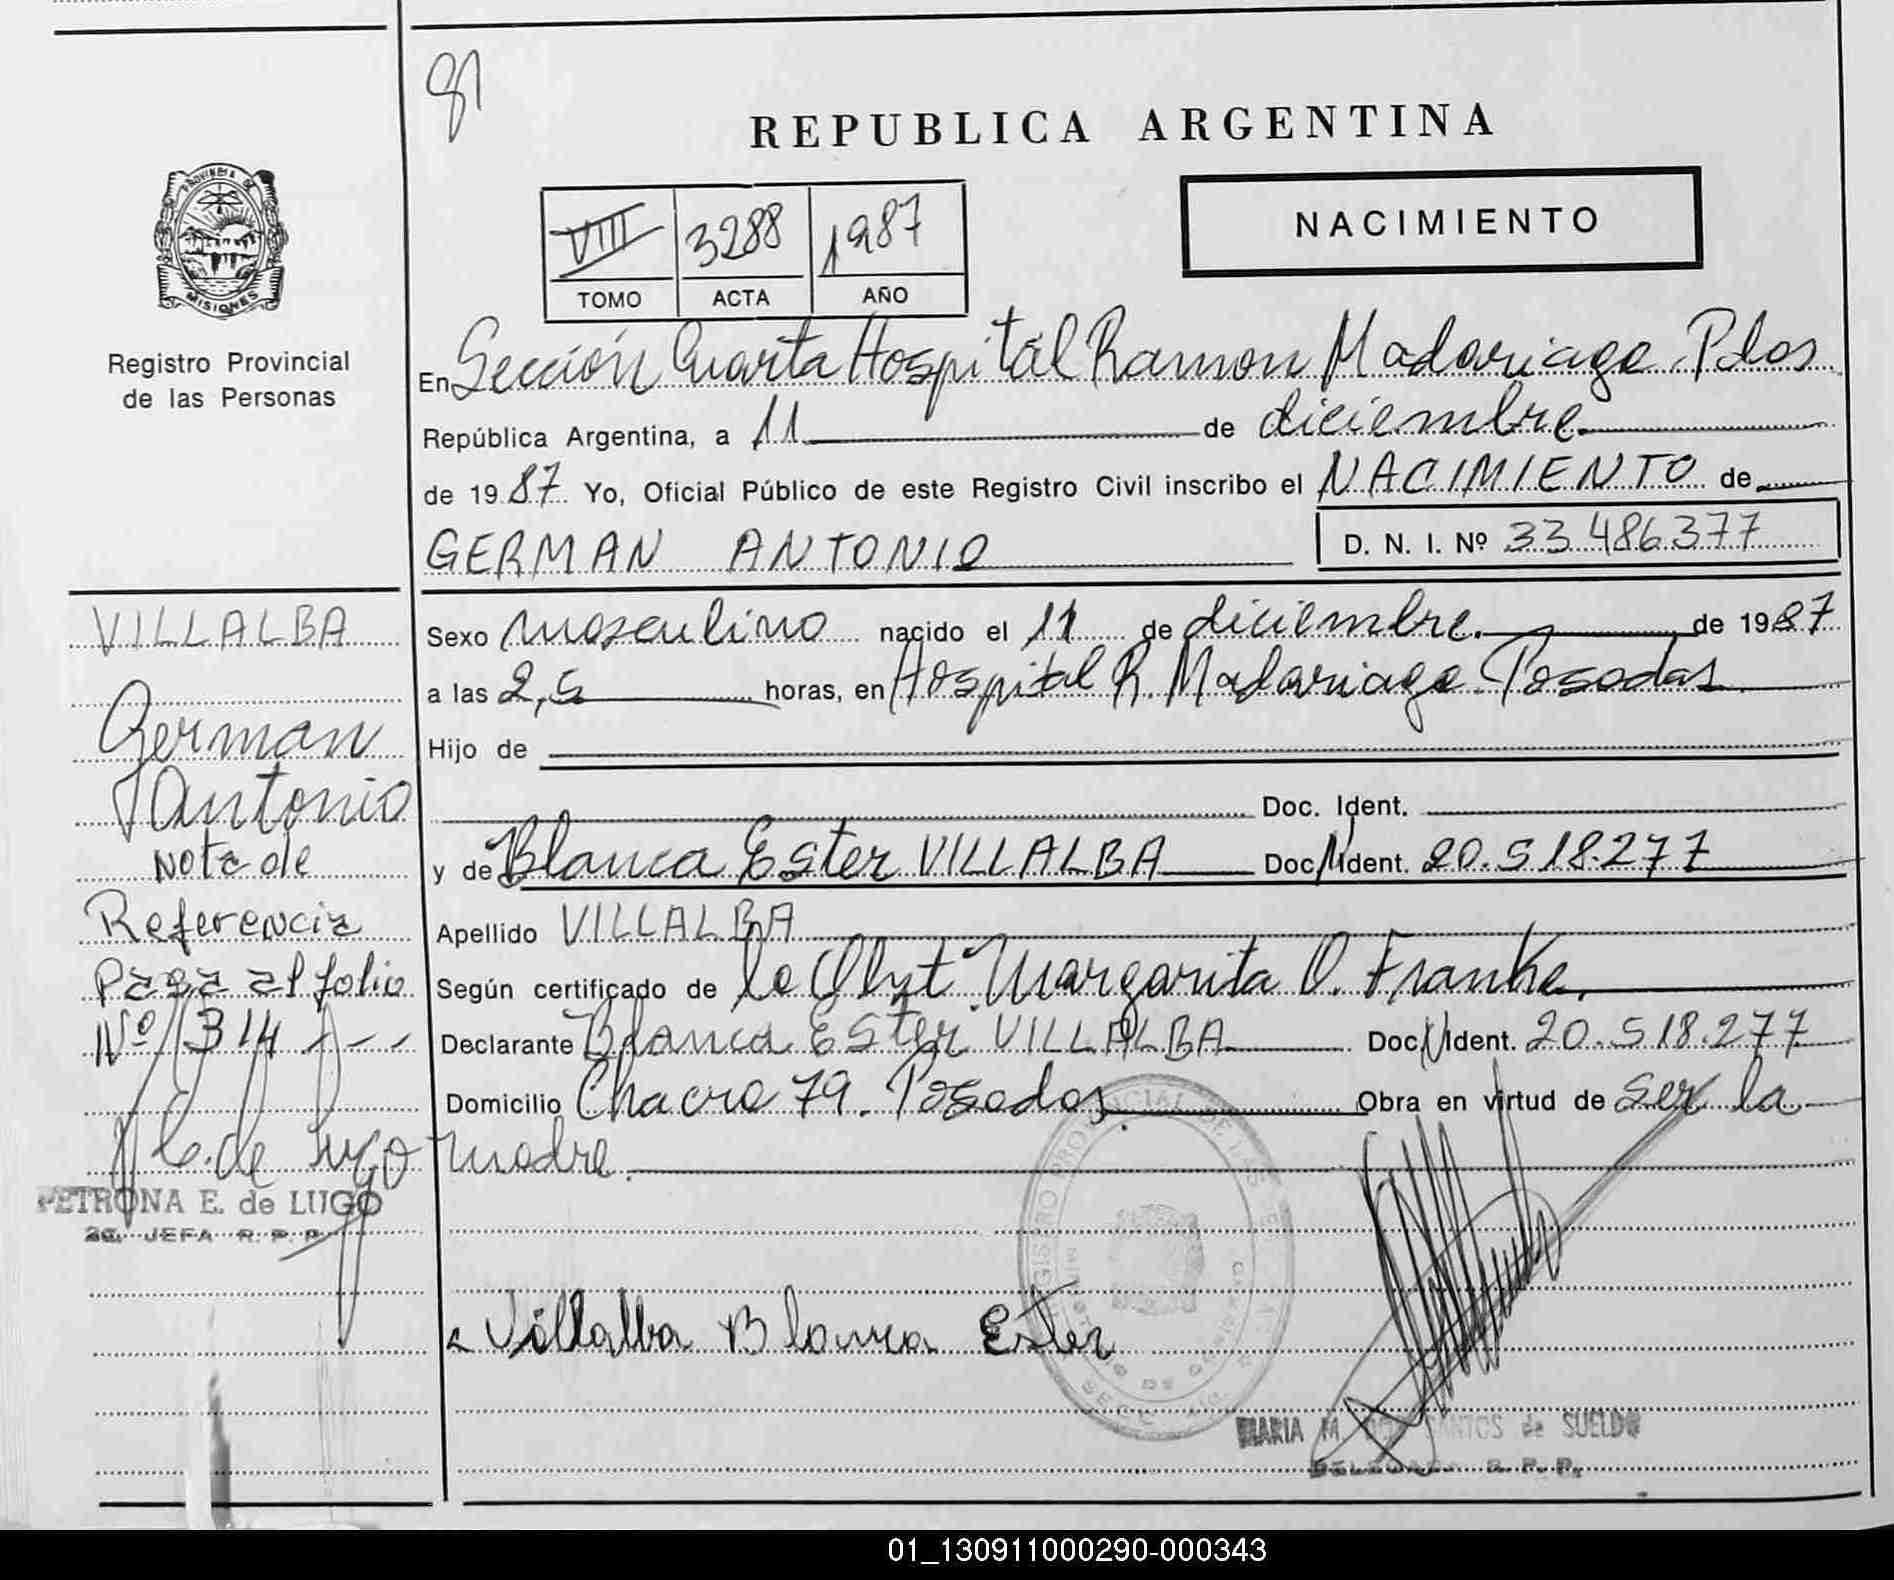 81
REPUBLICA ARGENTINA
PROVINCIA DE MISIONES
VIII 3288 1987
TOMO ACTA AÑO
NACIMIENTO
Registro Provincial
de las Personas
En Sección Cuarta Hospital Ramon Madariaga. Pdas
República Argentina, a 11 de diciembre
de 1987 Yo, Oficial Público de este Registro Civil inscribo el NACIMIENTO de
GERMAN ANTONIO D. N. I. Nº 33.486.377
VILLALBA
German
Antonio
Nota de
Referencia
Pasa al folio
Nº 314
E. de Lugo
PETRONA E. de LUGO
2a. JEFA R. P. P.
Sexo masculino nacido el 11 de diciembre. de 1987
a las 2,5 horas, en Hospital R. Madariaga. Posadas
Hijo de
Doc. Ident.
y de Blanca Ester VILLALBA Doc. Ident. 20.518.277
Apellido VILLALBA
Según certificado de la Obst. Margarita O. Franke.
Declarante Blanca Ester VILLALBA Doc. Ident. 20.518.277
Domicilio Chacra 79. Posadas Obra en virtud de ser la
madre.
REGISTRO PROVINCIAL DE LAS
Villalba Blanca Ester
MARIA M. DOS SANTOS de SUELDO
DELEGADA R. P. P.
01_130911000290-000343